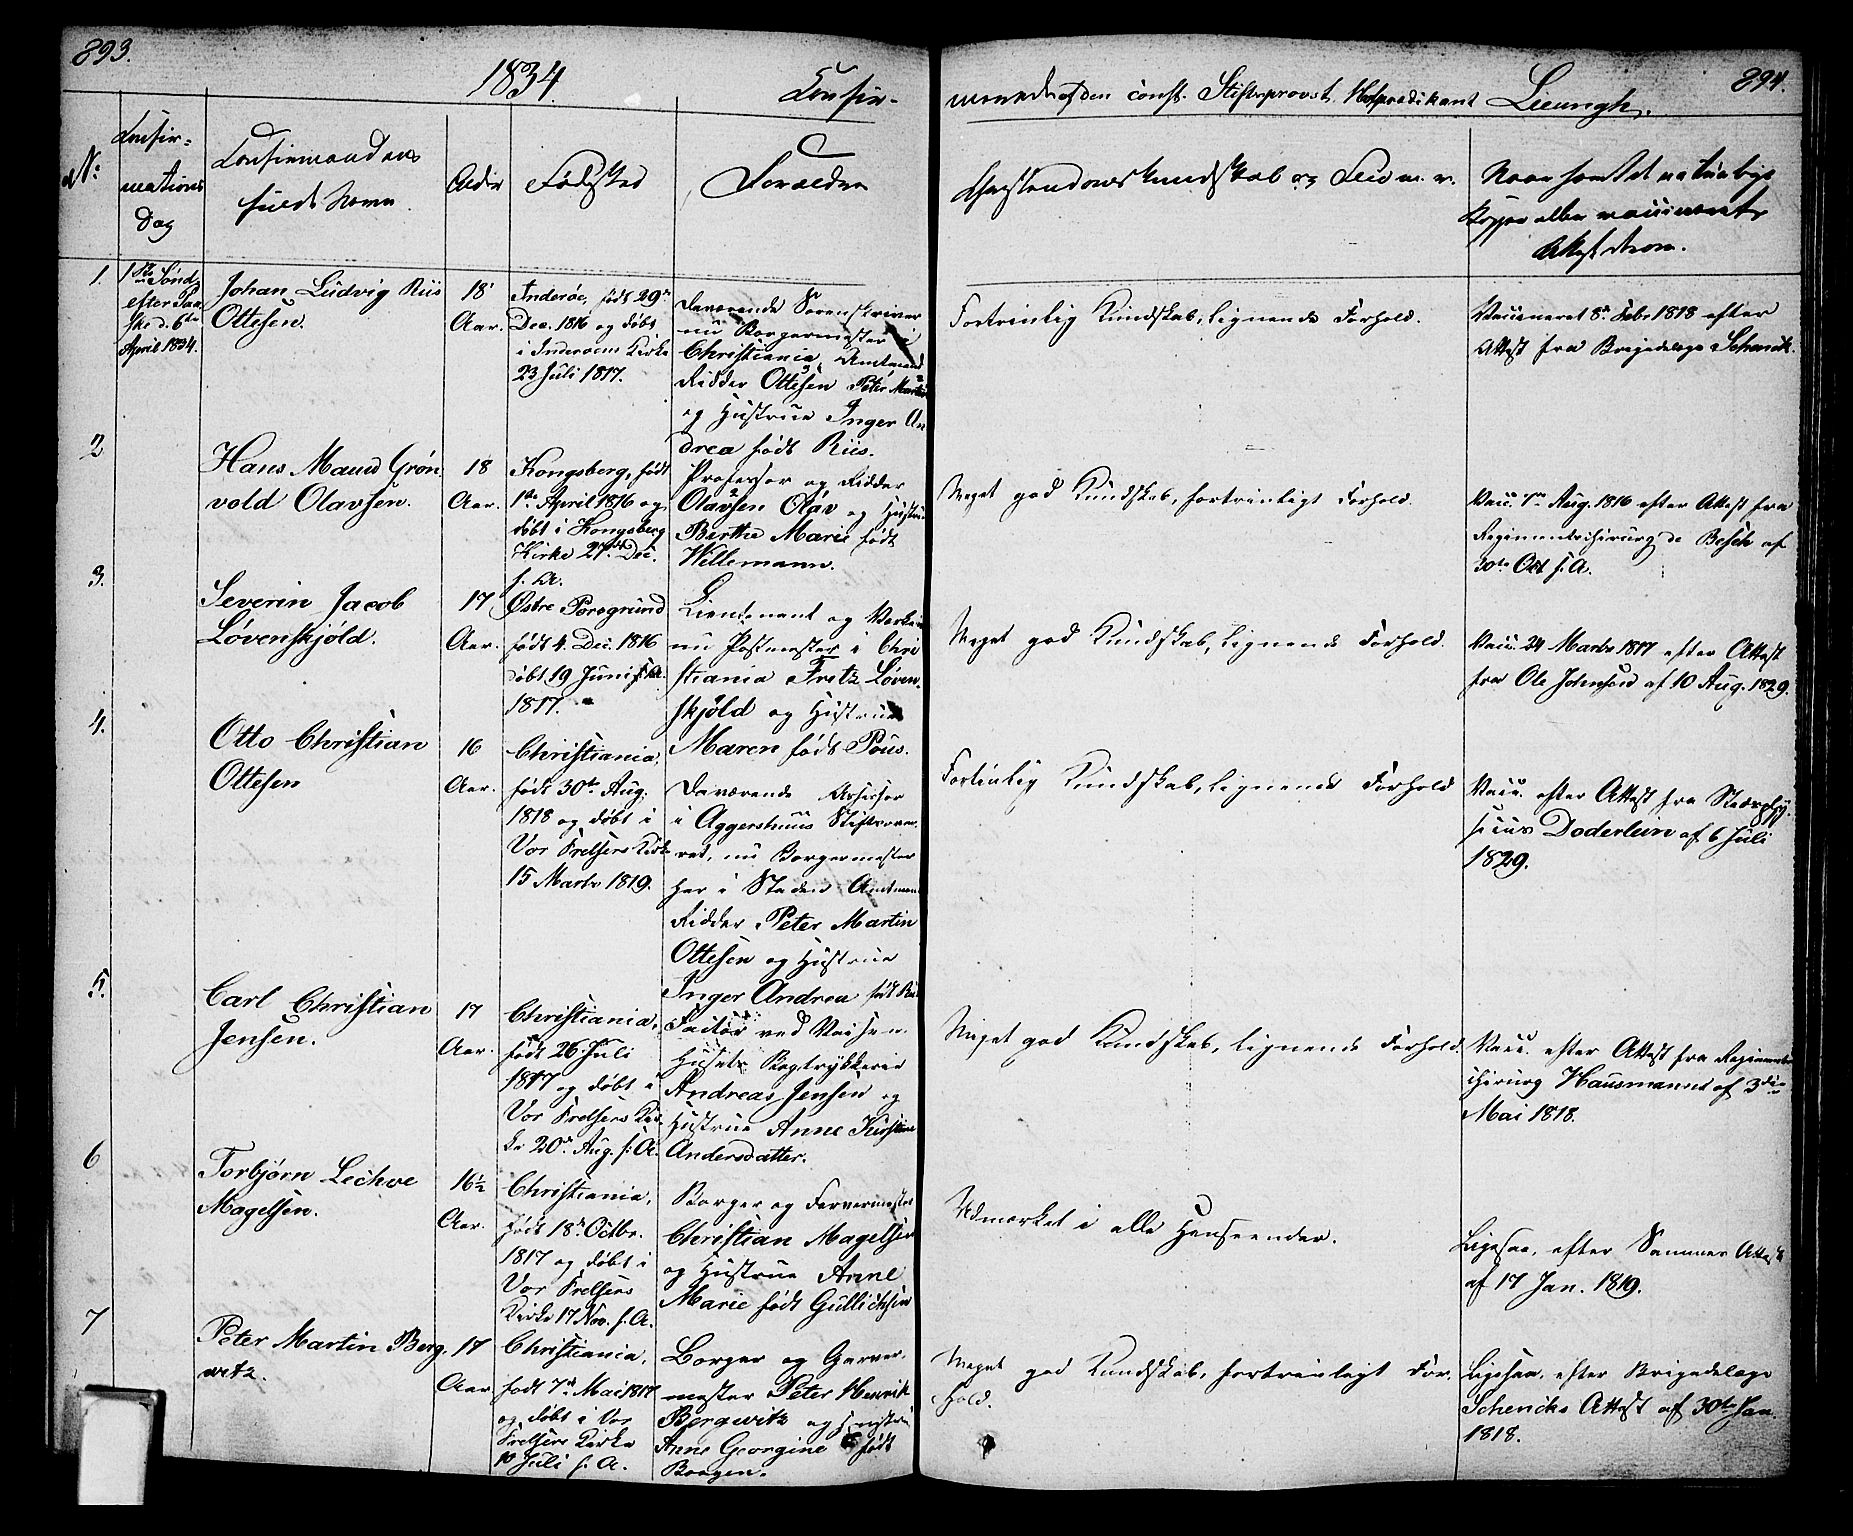 893.
1834.
Confir-
No.
Confir-
mations
Dag
Confirmandens
fulde Navn
Alder
Fødested
Forældre
1.
1ste Sønd.
efter Paa-
ske d. 6te
April 1834.
Johan Ludvig Riis
Ottesen.
18
Aar.
Inderøe, født 29de
Dec. 1816 og døbt
i Inderøens Kirke
23 Juli 1817.
Daværende Sorenskriver
nu Borgermester i
Christiania, Amtmand
Ridder Ottesen Peter Martin
og Hustrue Inger An
drea født Riis.
2
Hans Mandt Grøn
vold Olavsen.
18
Aar.
Kongsberg, født
1ste April 1816 og
døbt i Kongsberg
Kirke 27de Dec.
s. A.
Professor og Ridder
Olavsen Olav og Hustrue
Birthe Marie født
Wellemann.
3.
Severin Jacob
Løvenskjöld.
17
Aar.
Østre Porsgrund
født 4. Dec. 1816
døbt 19 Juni
1817.
Lieutenant og
nu Postmester i Chri
stiania Fretz Löven-
skjöld og Hustrue
Maren født Pous.
4.
Otto Christian
Ottesen
16
Aar.
Christiania,
født 30te Aug.
1818 og døbt i
Vor Frelsers Kirke
15 Marts 1819.
Daværende Assessor
i Aggershuus Stiftsover-
ret, nu Borgermester
her i Staden Amtmand
Ridder Peter Martin
Ottesen og Hustrue
Inger Andrea født Riis
5.
Carl Christian
Jensen.
17
Aar.
Christiania,
født 26. Juli
1817 og døbt i
Vor Frelsers Kir-
ke 20de Aug. s. A.
Factor ved Vaisen-
husets Bogtrykkerie
Andreas Jensen og
Hustrue Anne Kirstine
Andersdatter.
6
Torbjørn Lechve
Magelsen.
16½
Aar.
Christiania,
født 18de Octbr.
1817 og døbt i
Vor Frelsers
Kirke 17 Nov. s. A.
Borger og Farvermester
Christian Magelsen
og Hustrue Anne
Marie født Gullichsen
7
Peter Martin Berg-
witz.
17
Aar
Christiania,
født 7de Mai 1817
og døbt i Vor
Frelsers Kirke
10 Juli s. A.
Borger og Garver-
mester Peter Henrik
Bergwitz og Hustrue
Anne Georgine født
Baagen.
894.
merede af den const. Stiftsprovst, Hofprædikant Lieungh.
Christendomskundskab og Flid m. v.
Naar havt de naturlige
Kopper eller vaccineret
Attest derom.
Fortrinlig Kundskab, lignende Forhold.
Vaccineret 8de Febr. 1818 efter
Attest fra Brigadelæge Schenck.
Meget god Kundskab, fortrinligt Forhold.
Vacc. 7de Aug. 1816 efter Attest fra
Regimentschirurg de Besche af
30te Oct s. A.
Meget god Kundskab, lignende Forhold.
Vacc. 24 Marts 1817 efter Attest
fra Ole Johnsen af 10 Aug. 1829.
Fortrinlig Kundskab, lignende Forhold
Vacc. efter Attest fra Stadsphy-
sicus Döderlein af 6 Juli
1829.
Meget god Kundskab, lignende Forhold.
Vacc. efter Attest fra Regiments
chirurg Hausmannd af 3die
Mai 1818.
Udmærket i alle Henseender.
Ligesaa, efter Sammes Attest
af 17 Jan. 1819.
Meget god Kundskab, fortrinligt For-
hold.
Ligesaa, efter Brigadelæge
Schencks Attest af 30te Jan.
1818.